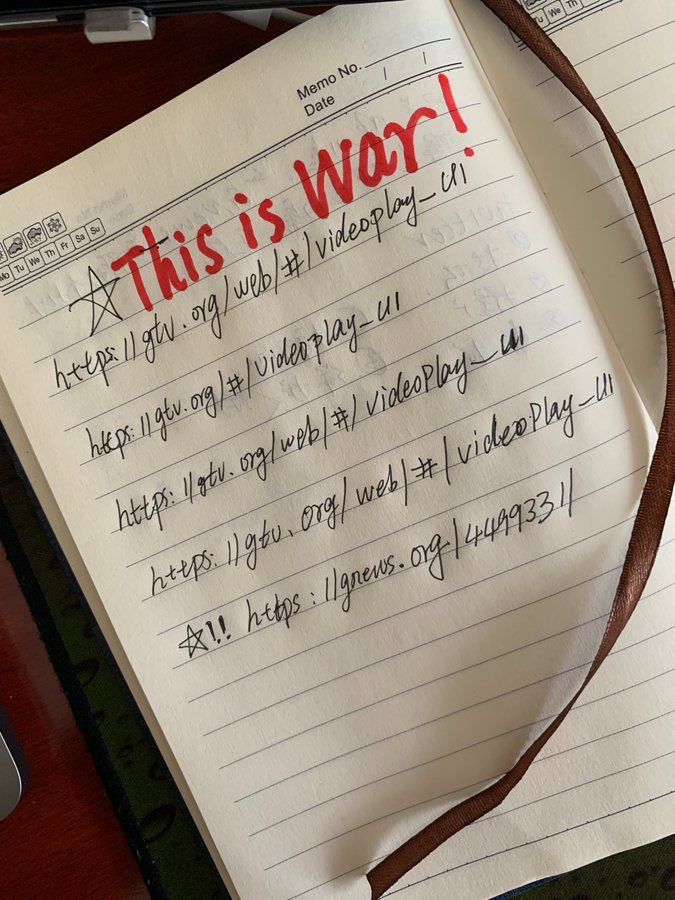 Memo No.
Date / /
Mo Tu We Th Fr Sa Su
Tu We Th
This is War!
https://gtv.org/web/#/videoplay_UI
https://gtv.org/#/videoplay_UI
https://gtv.org/web/#/videoplay_UI
https://gtv.org/web/#/videoplay_UI
!! https://gnews.org/449933/